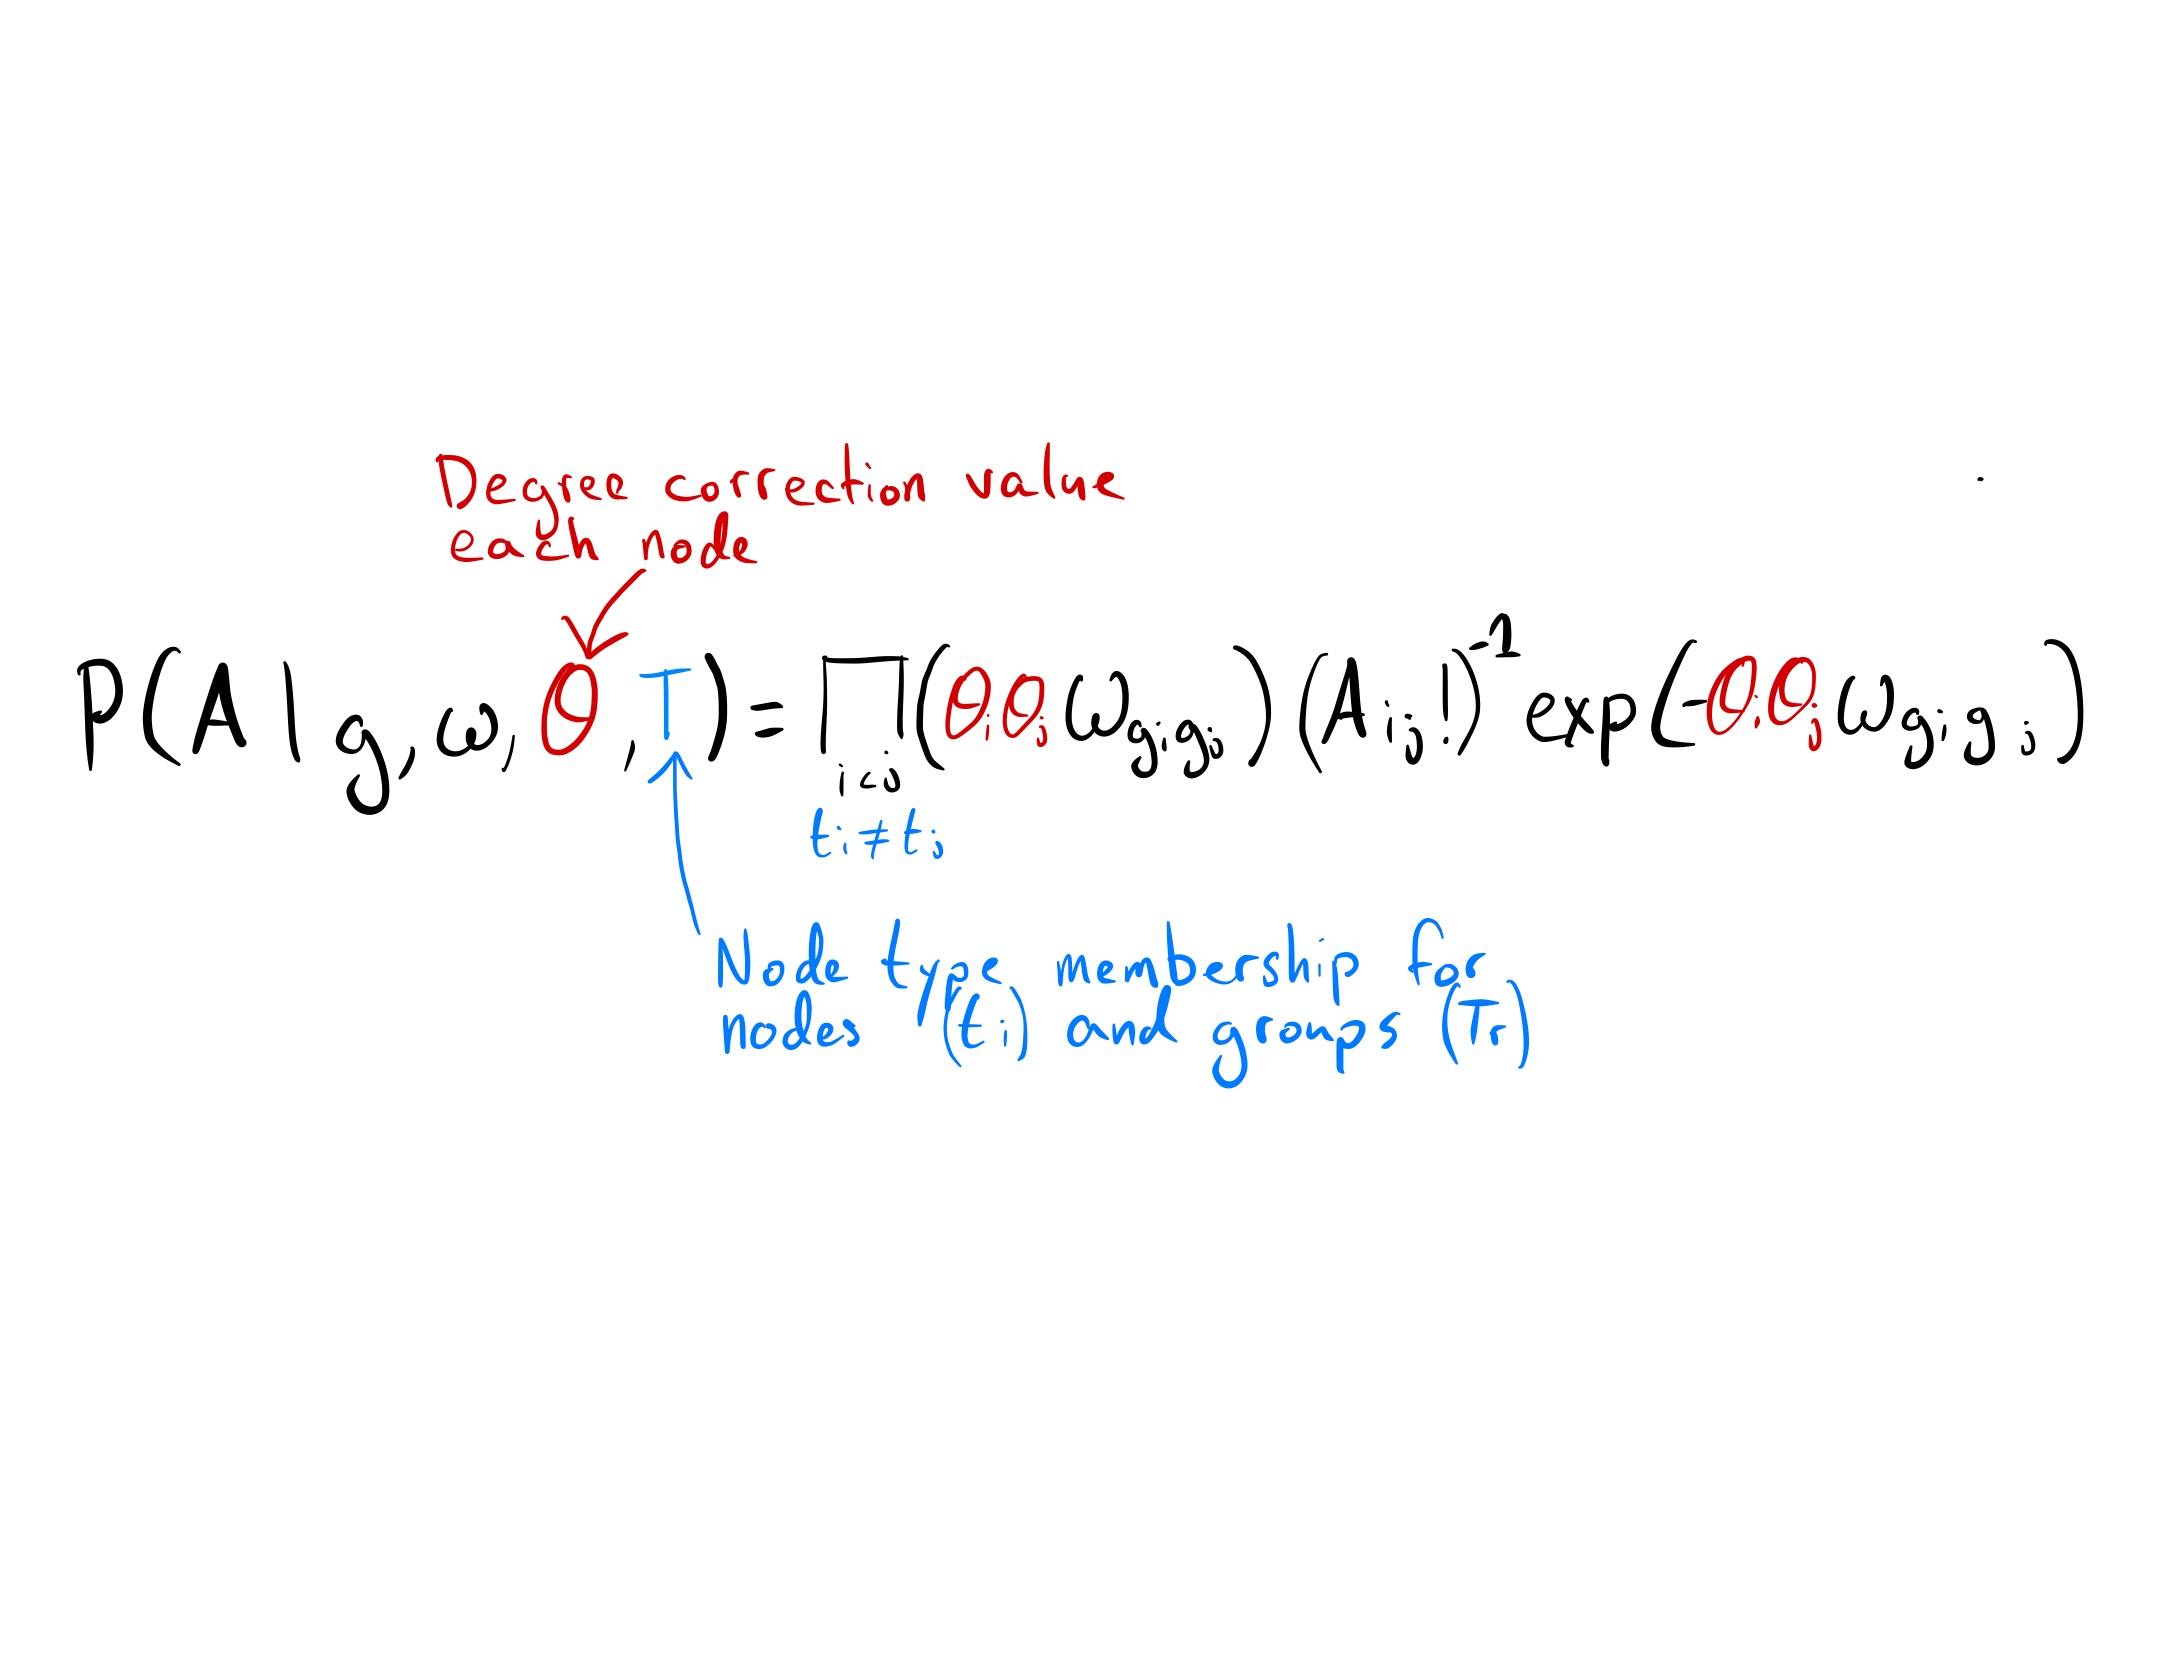 Degree correction value
each node
P(A | g, ω, θ, T) = ∏ (θᵢθⱼ ω gᵢgⱼ) (Aᵢⱼ!)⁻¹ exp(-θᵢθⱼ ω gᵢgⱼ)
i<j
tᵢ ≠ tⱼ
Node type membership for
nodes (tᵢ) and groups (Tᵣ)